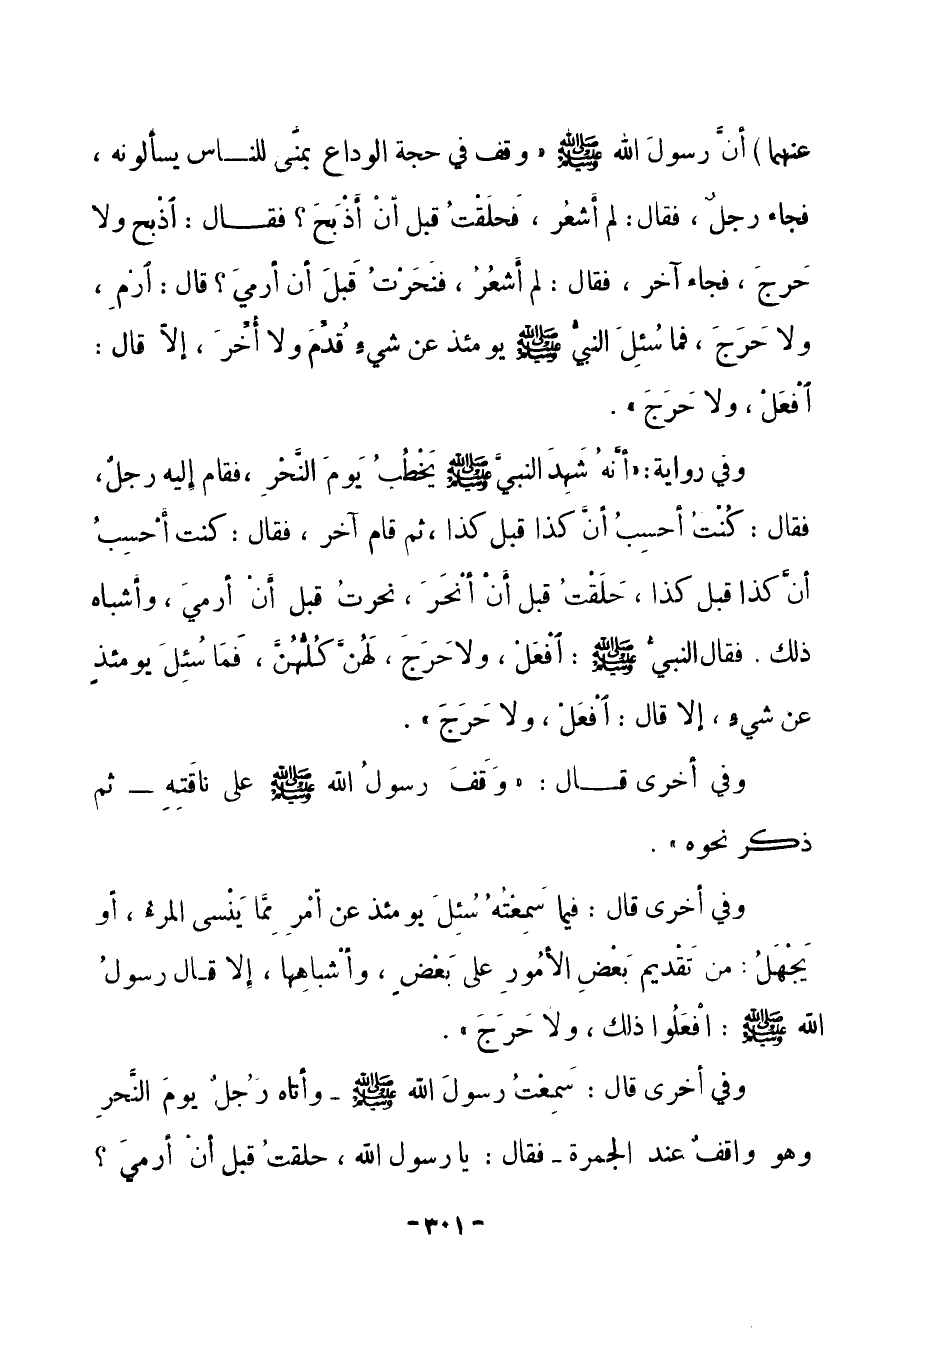 عنهما) أنَّ رسولَ الله ﷺ « وقف في حجة الوداع بمنًى للناس يسألونه ،
فجاء رجلٌ ، فقال : لم أشعُر ، فَحلَقْتُ قبل أنْ أَذْبَحَ ؟ فقال : ٱذْبح ولا
حَرجَ ، فجاء آخر ، فقال : لم أَشعُرْ ، فنَحَرْتُ قَبلَ أن أرميَ ؟ قال : ٱرْمِ ،
ولا حَرَجَ ، فما سُئِلَ النبيُّ ﷺ يومئذ عن شيءٍ قُدِّمَ ولا أُخِّرَ ، إلاّ قال :
ٱفْعَلْ ، ولا حَرَجَ » .
وفي رواية : « أنَّهُ شَهِدَ النبيَّ ﷺ يَخْطُبُ يَومَ النَّحْرِ ، فقام إليه رجلٌ ،
فقال : كُنْتُ أحسِبُ أنَّ كذا قبل كذا ، ثم قام آخر ، فقال : كنت أَحسِبُ
أنَّ كذا قبل كذا ، حَلَقْتُ قبل أنْ أنْحَرَ ، نحرتُ قبل أنْ أرميَ ، وأشباه
ذلك . فقال النبيُّ ﷺ : ٱفْعَلْ ، ولا حَرَجَ ، لَهُنَّ كُلُّهُنَّ ، فَمَا سُئِلَ يومئذٍ
عن شيءٍ ، إلا قال : ٱفْعَلْ ، ولا حَرَجَ » .
وفي أخرى قال : « وَقَفَ رسولُ الله ﷺ على ناقَتِهِ — ثم
ذكر نحوه » .
وفي أخرى قال : فما سَمِعْتُهُ سُئِلَ يومئذ عن أمْرٍ مِمَّا يَنْسى المرءُ ، أو
يَجْهَلُ : من تَقْديم بَعْضِ الأمُورِ على بَعْضٍ ، وأشباهِها ، إلا قال رسولُ
الله ﷺ : افْعَلُوا ذلك ، ولا حَرَجَ » .
وفي أخرى قال : سَمِعْتُ رسولَ الله ﷺ - وأتاه رَجُلٌ يومَ النَّحرِ
وهو واقفٌ عند الجمرة - فقال : يا رسول الله ، حلقتُ قبل أنْ أرميَ ؟
- ٣٠١ -